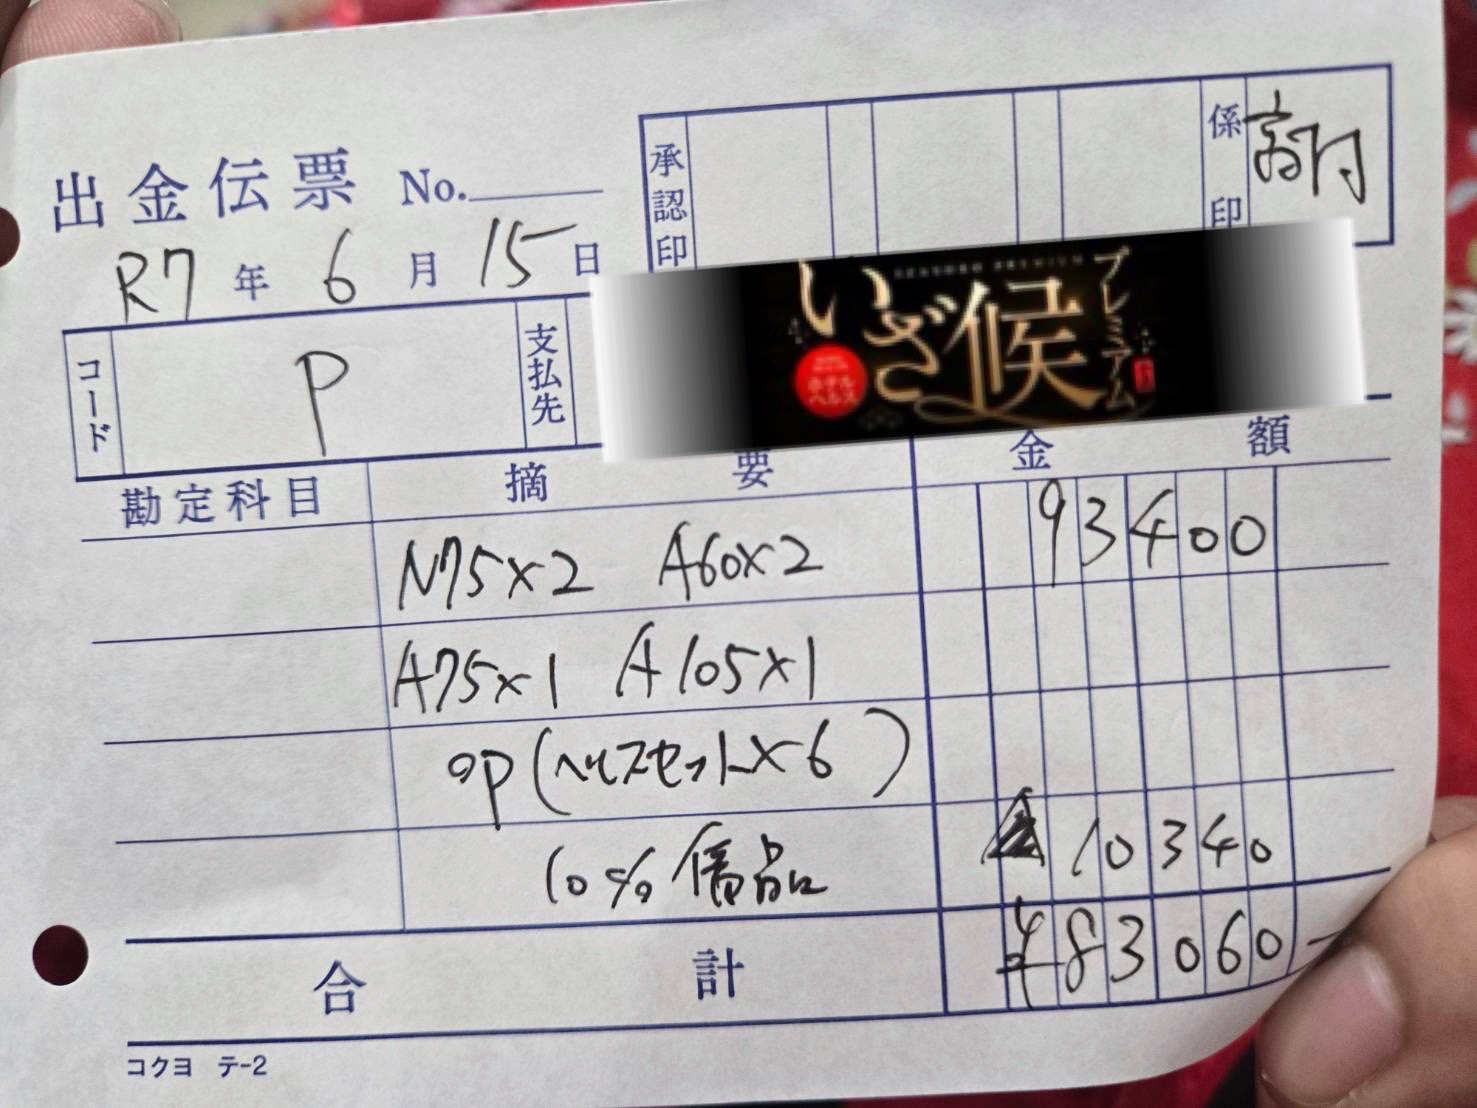 出金伝票 No.
承認印
係印
R7年 6月 15日
コード P 支払先
いざ候
プレミアム
ホテル
ヘルス
勘定科目 摘要 金額
N75×2 A60×2 93400
A75×1 A105×1
op(ヘルスセット×6)
10% 備品 10340
合計 ¥83060-
コクヨ テ-2